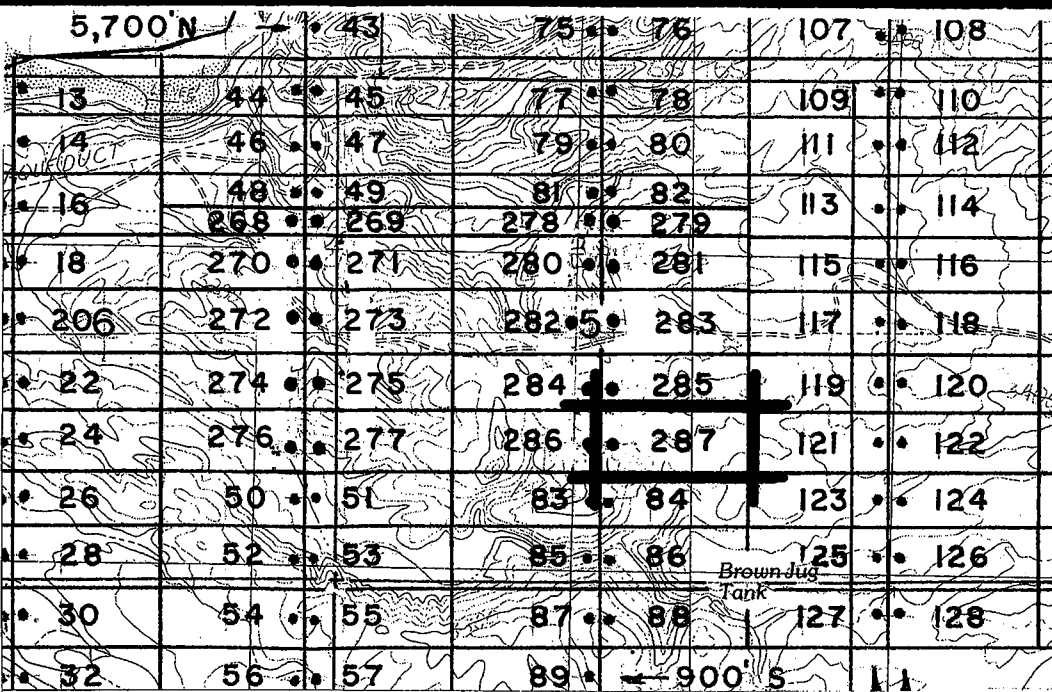 5,700'N 43 75 76 107 108
13 44 45 77 78 109 110
14 46 47 79 80 111 112
AQUEDUCT
48 49 81 82
16 113 114
268 269 278 279
18 270 271 280 281 115 116
206 272 273 282 5 283 117 118
22 274 275 284 285 119 120
24 276 277 286 287 121 122
26 50 51 83 84 123 124
28 52 53 85 86 125 126
Brown Jug
Tank
30 54 55 87 88 127 128
32 56 57 89 900' S